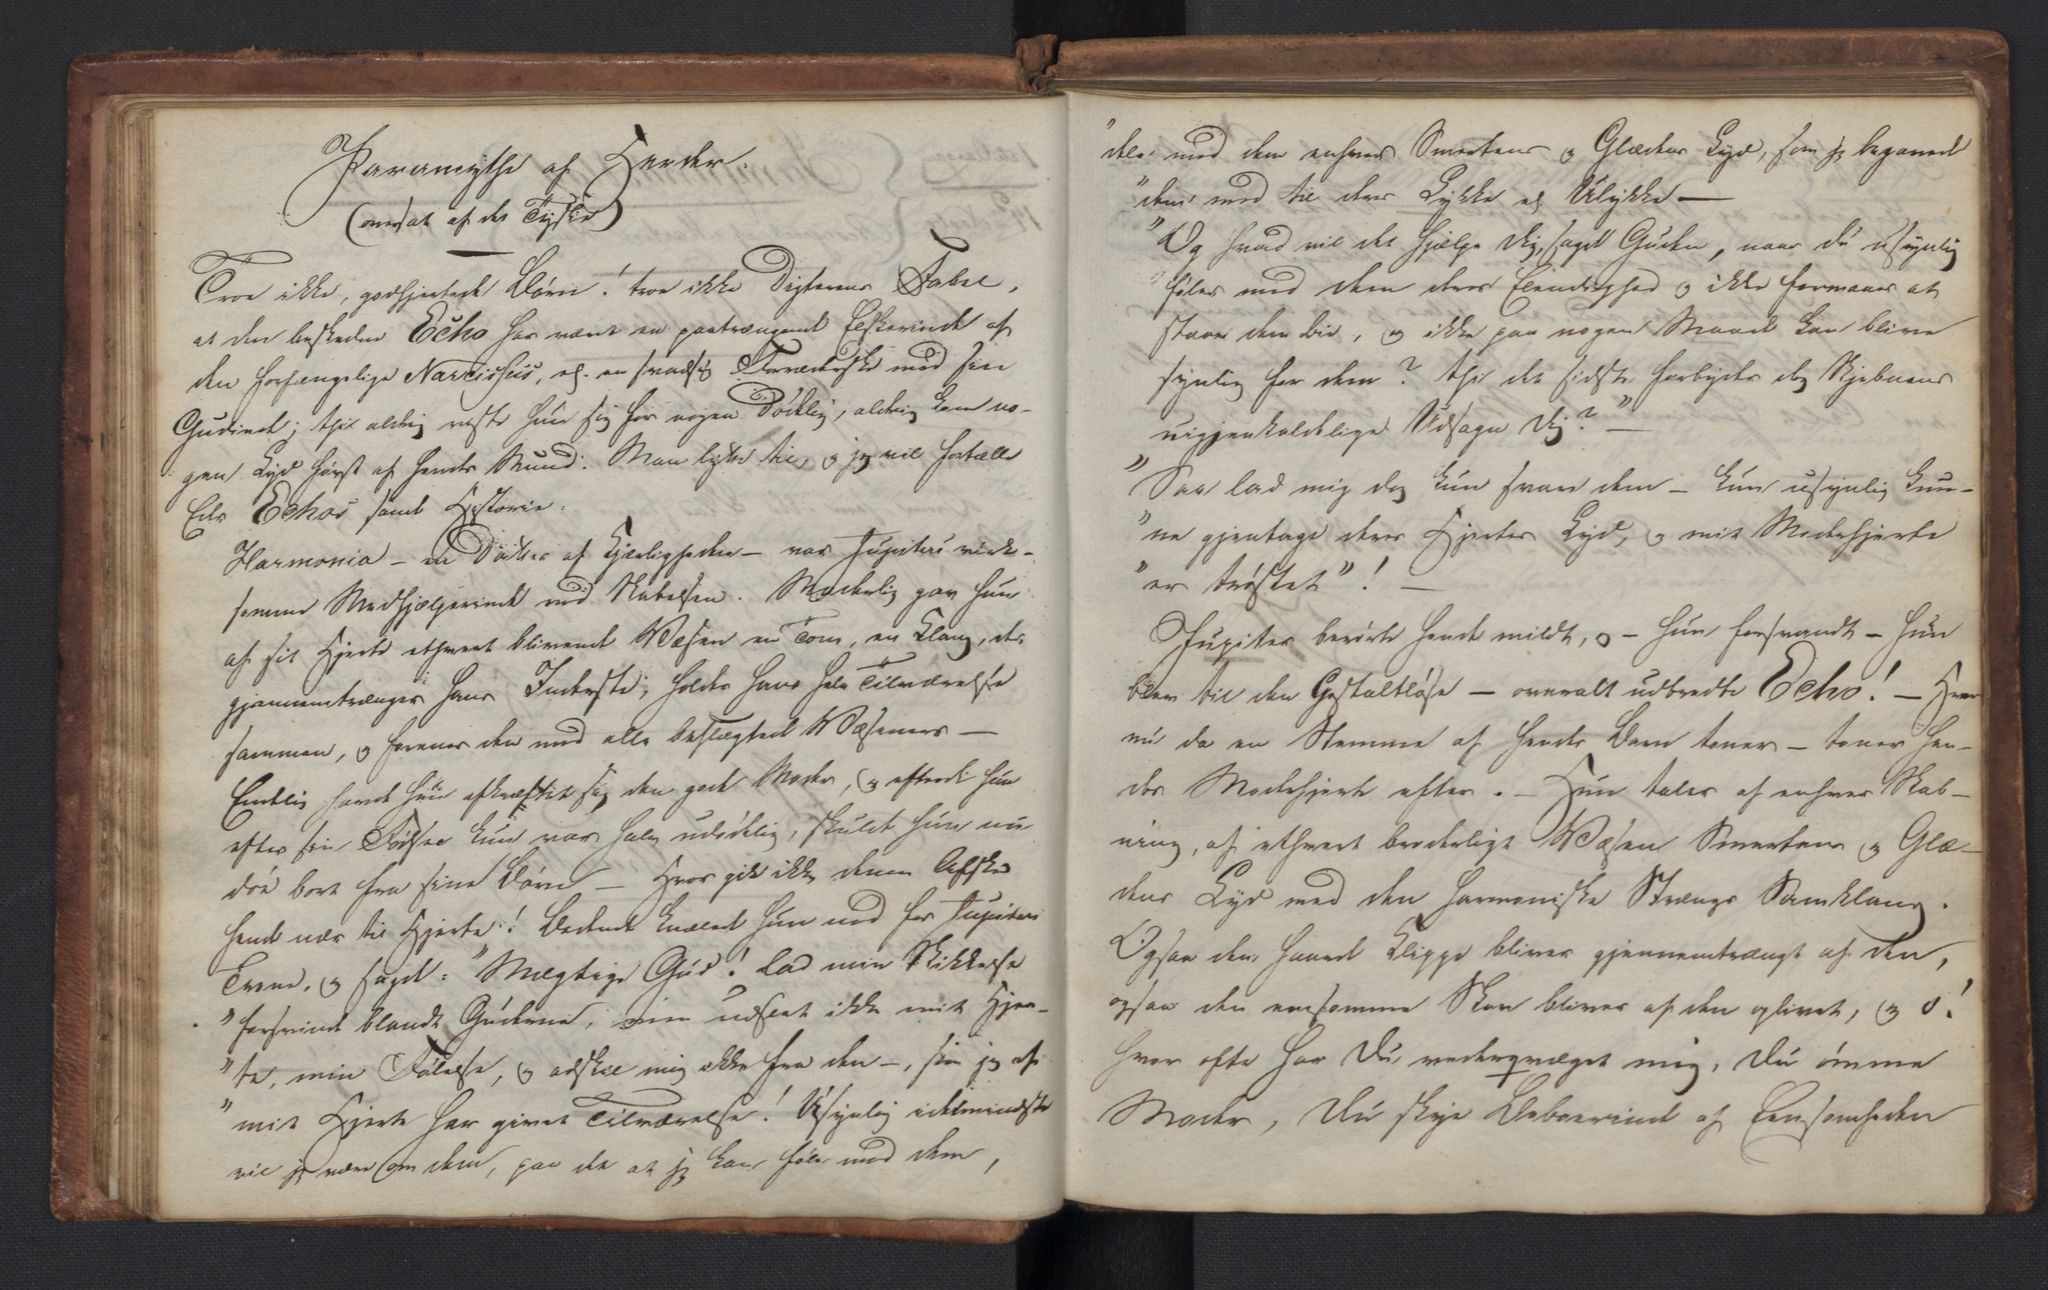 Paramythe af Herder.
(oversat af det Tyske)
Troe ikke, godhjertede Børn! troe ikke Digterens Fabel,
at den beskedne Echo har været en paatrængende Elskerinde af
den forfængelige Narcissus, el. en svadsig Forræderske mod sin
Gudinde; thi aldrig viste hun sig for nogen Dødelig, aldrig kom no-
gen Lyd først af hendes Mund. Man lytte til, og jeg vil fortælle
Eder Echos sande Historie.
Harmonia – en Datter af Kjerligheden – var Jupiters virk-
somme Medhjælperinde ved Skabelsen. Moderlig gav hun
af sit Hjerte ethvert blivende Væsen en Tone, en Klang, der
gjennemtrænger hans Inderste, holder hans hele Tilværelse
sammen, og forener den med alle beslægtede Væsener –
Endelig havde hun afkræftet sig den gode Moder, og efterdi hun
efter sin Fødsel kun var halv udødelig, skulde hun nu
døe bort fra sine Børn – Hvor gik ikke denne Afsked
hende nær til Hjerte! Bedende knælede hun ned for Jupiters
Trone, og sagde: "Mægtige Gud! lad min Skikkelse
"forsvinde blandt Guderne, men udslet ikke mit Hjer-
"te, min Følelse, og adskil mig ikke fra dem –, som jeg af
"mit Hjerte har givet Tilværelse! Usynlig idetmindste
vil jeg være om dem, paa det at jeg kan føle med dem,
"dele med dem enhver Smertens og Glædes Lyd, som jeg begavede
"dem med til deres Lykke el. Ulykke –
"Og hvad vil det hjælpe dig, sagde Guden, naar du usynlig
"føler med dem deres Elendighed og ikke formaaer at
staae dem bie, og ikke paa nogen Maade kan blive
synlig for dem? thi det sidste forbyder dog Skjebnens
uigjenkaldelige Udsagn dig?" –
"Saa lad mig dog kun svare dem – kun usynlig kun-
"ne gjentage deres Hjertes Lyd, og mit Moderhjerte
"er trøstet"! –
Jupiter berørte hende mildt, og – hun forsvandt – hun
blev til den Gestaltløse – overalt udbredte Echo! – Hvor
nu da en Stemme af hendes Børn toner – toner hen-
des Moderhjerte efter. – Hun taler af enhver Skab-
ning, af ethvert broderligt Væsen Smertens og Glæ-
dens Lyd med den harmoniske Strængs Samklang.
Ogsaa den haarde Klippe bliver gjennemtrængt af den,
ogsaa den eensomme Skov bliver af den oplivet, og o!
hvor ofte har Du vederqvæget mig, Du ømme
Moder, Du skye Beboerinde af Eensomheden